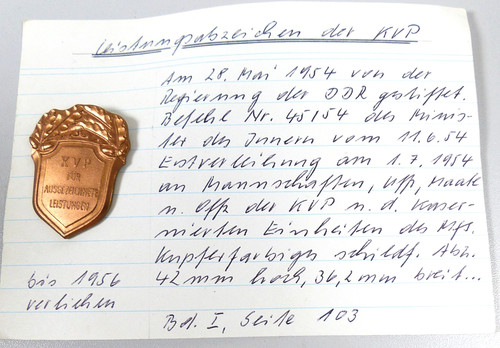 Leistungsabzeichen der KVP
Am 28. Mai 1954 von der
Regierung der DDR gestiftet.
Befehl Nr. 45/54 des Minis-
ter des Innern vom 11.6.54
Erstverleihung am 1.7.1954
an Mannschaften, Uffz, Maate
u. Offz der KVP u. d. Kaser-
nierten Einheiten des MfS.
Kupferfarbiges schildf. Abz.
42mm hoch, 36,2mm breit...
Bd. I, Seite 103
KVP
FÜR
AUSGEZEICHNETE
LEISTUNGEN
bis 1956
verliehen